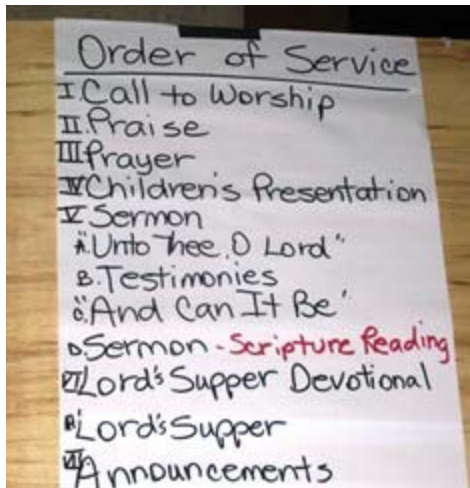 Order of Service
I. Call to Worship
II. Praise
III Prayer
IV Children's Presentation
V Sermon
A. "Unto Thee, O Lord"
B. Testimonies
C. "And Can It Be"
D. Sermon - Scripture Reading
VI Lord's Supper Devotional
A. Lord's Supper
VII Announcements